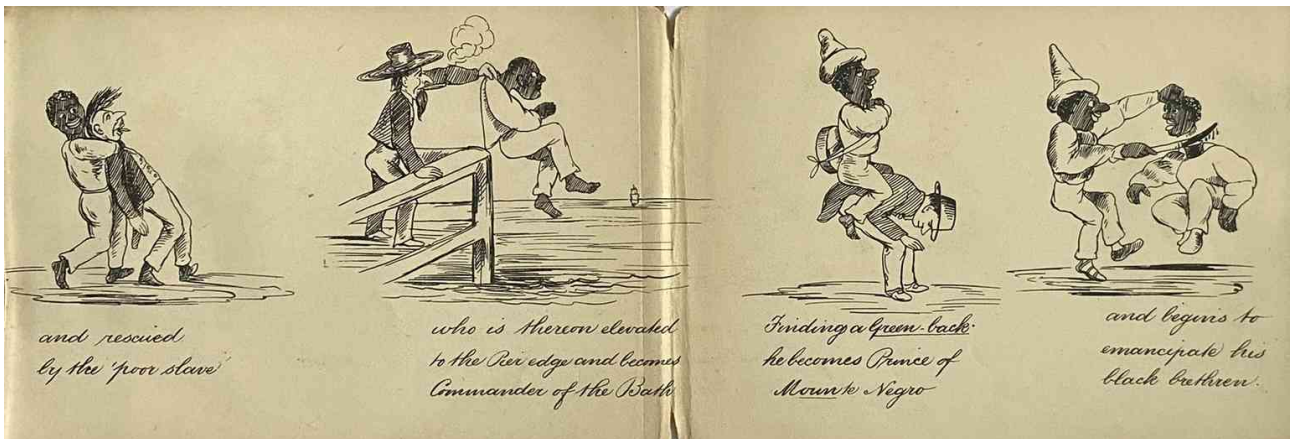 and rescued
by the 'poor slave'
who is thereon elevated
to the Pier edge and becomes
Commander of the Bath
Finding a Green-back.
he becomes Prince of
Mounte Negro
and begins to
emancipate his
black brethren.